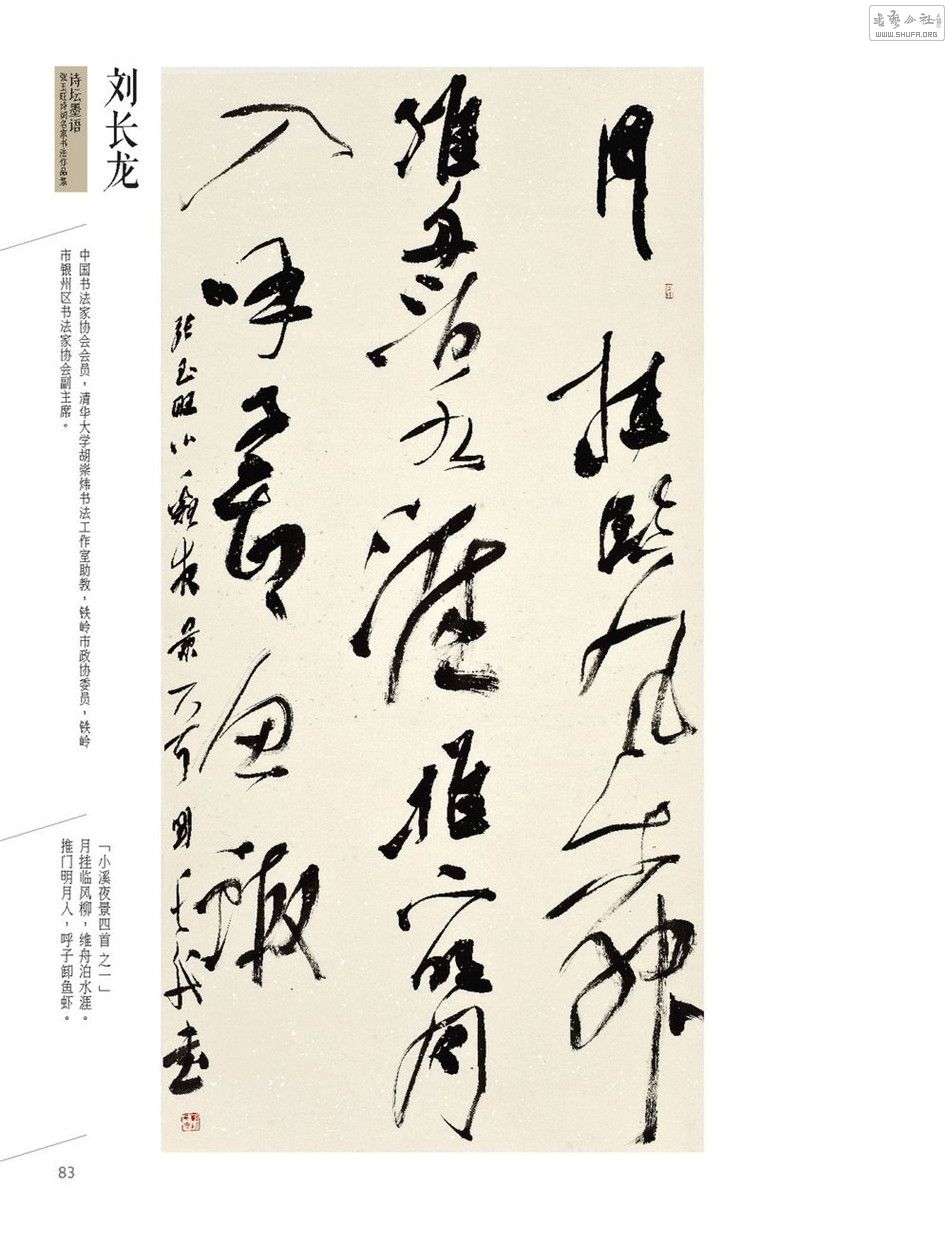 書藝公社
WWW.SHUFA.ORG
刘长龙
诗坛墨语
张玉旺诗词名家书法作品集
中国书法家协会会员，清华大学胡崇炜书法工作室助教，铁岭市政协委员，铁岭
市银州区书法家协会副主席。
「小溪夜景四首 之一」
月挂临风柳，维舟泊水涯。
推门明月人，呼子卸鱼虾。
月挂臨風柳
維舟泊水涯推门明月
入呼子卸鱼蝦
張玉旺小溪夜景
書
83